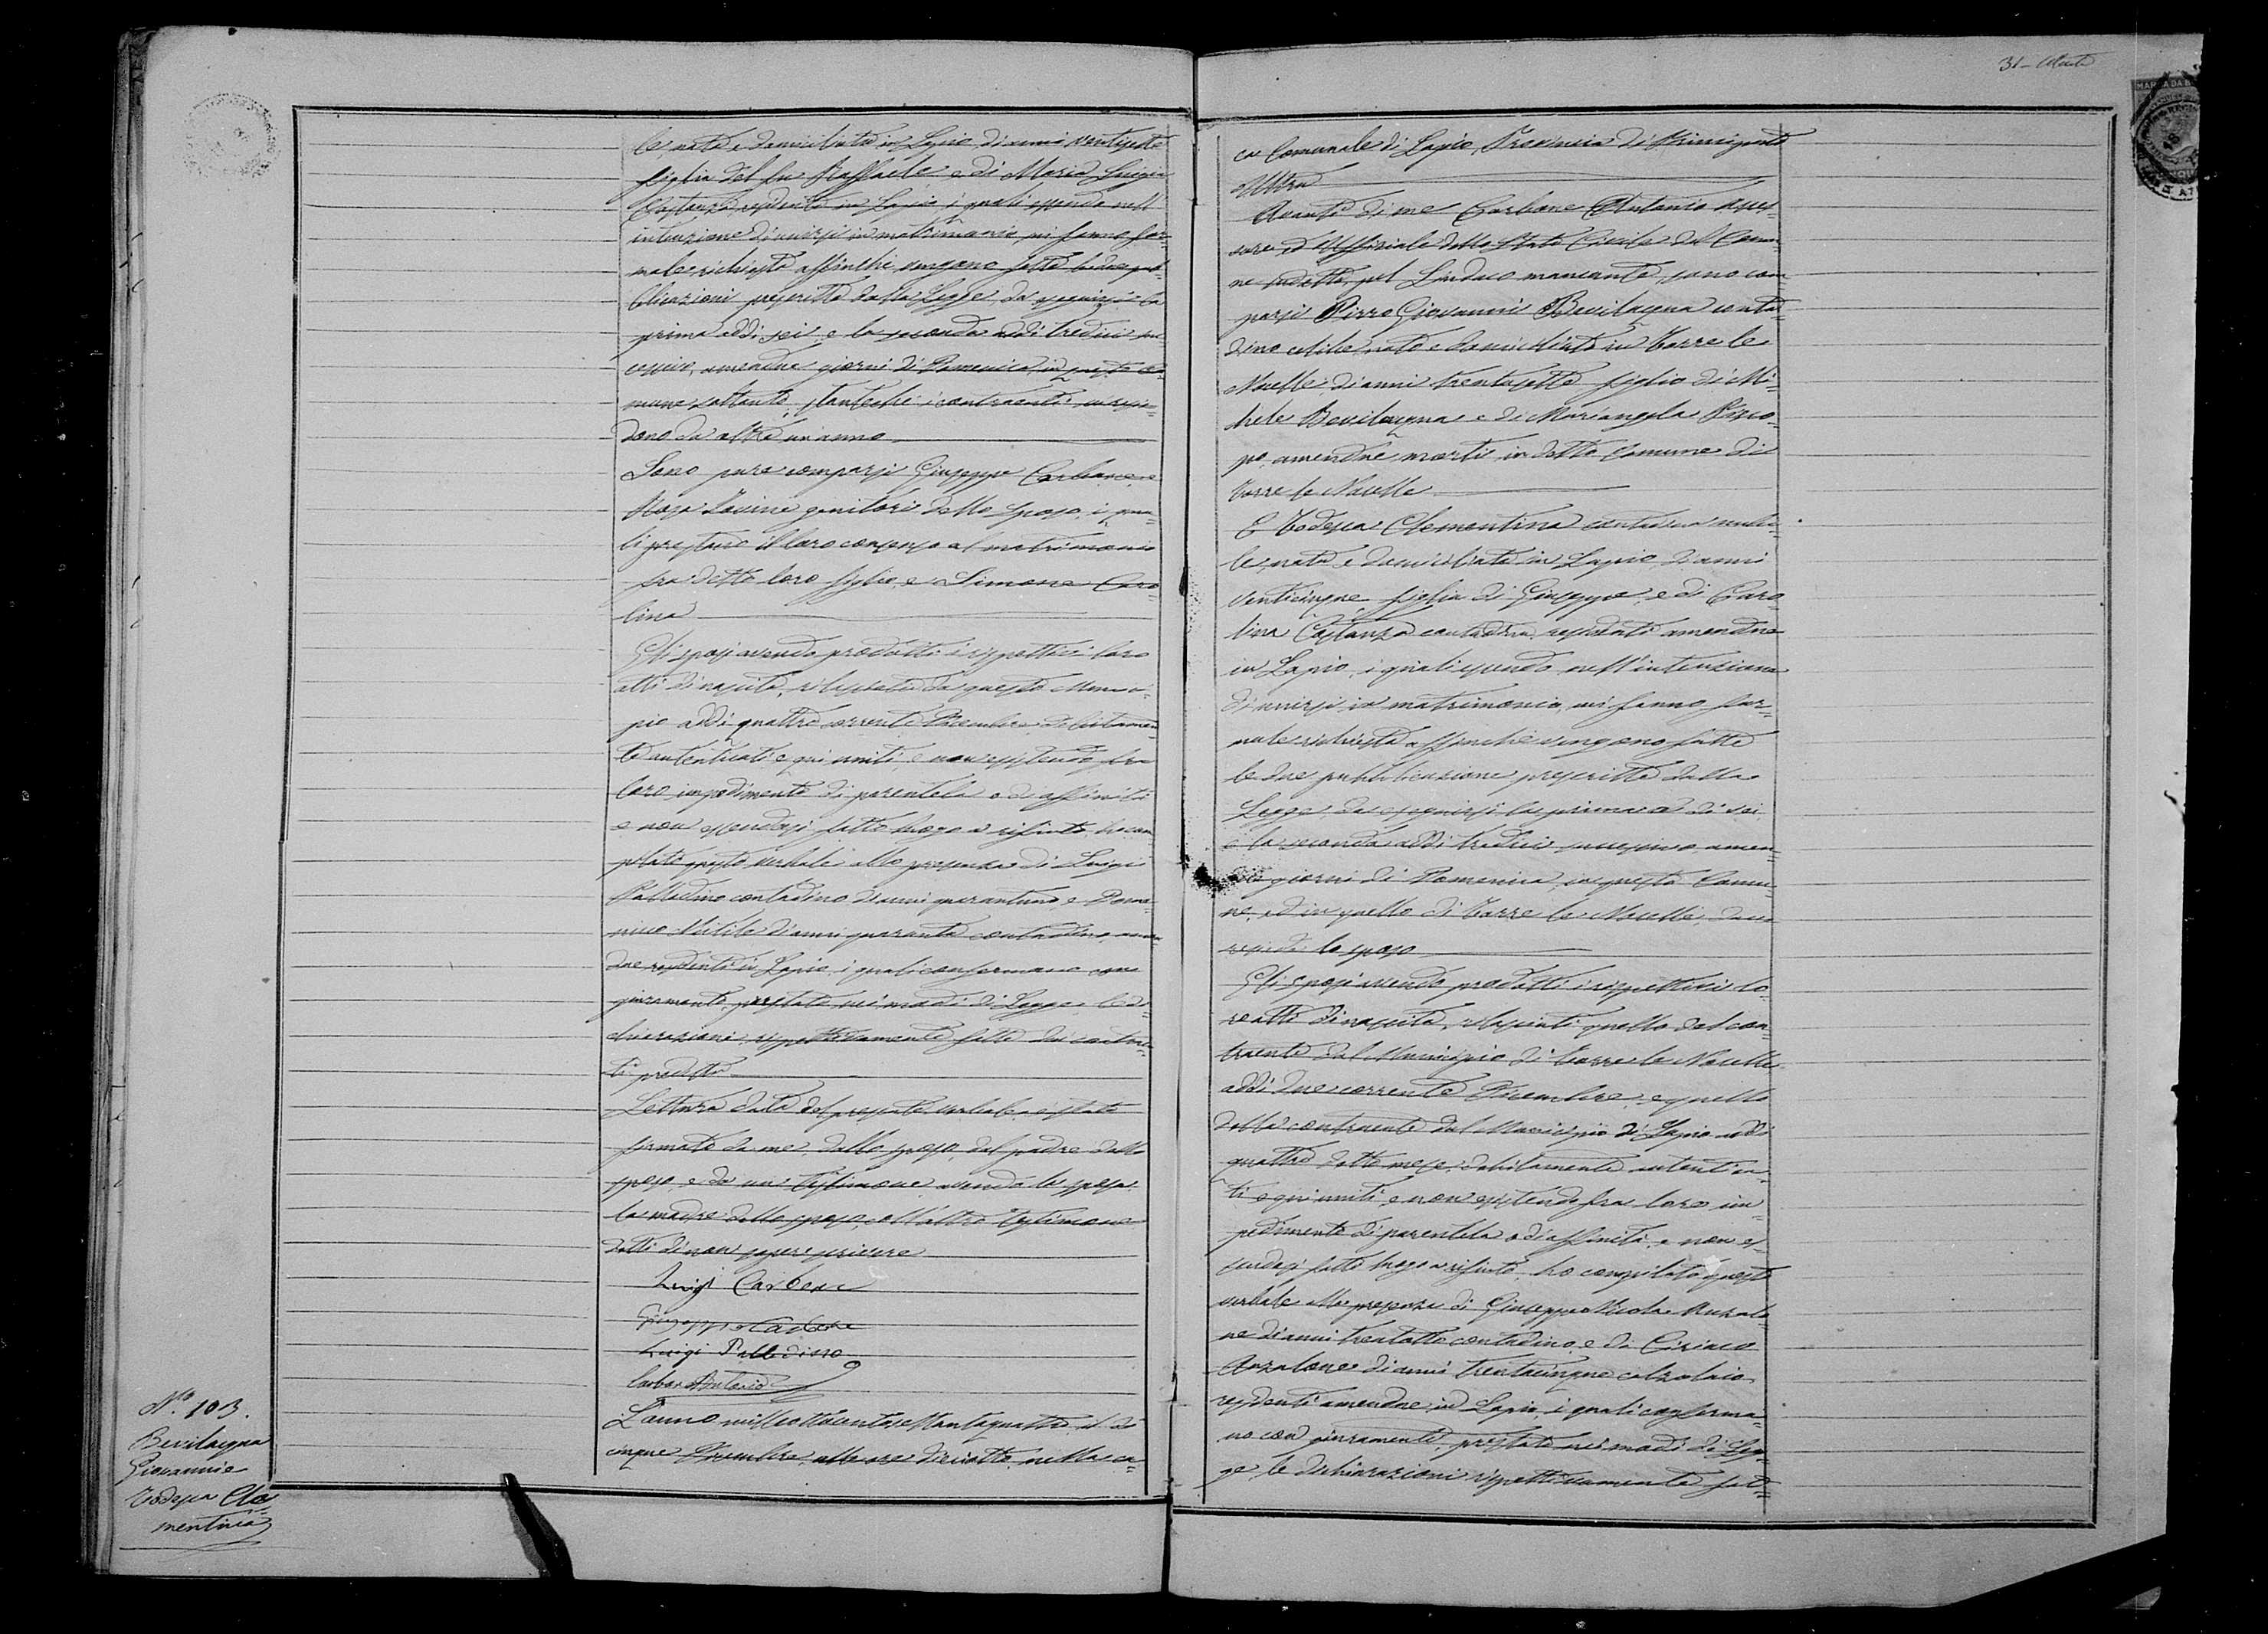 le, nata e domiciliata in Lapio, di anni ventisette
figlia del fu Raffaele e di Maria Luigia
Costanza residente in Lapio, i quali essendo nell'
intenzione di unirsi in matrimonio, mi fanno for=
male richiesta affinchè vengano fatte le due pub=
blicazioni prescritte dalla Legge, da eseguirsi la
prima addì sei e la seconda addì tredici suc
cessivo, amendue giorni di Domenica in questo Co=
mune soltanto, stantechè i contraenti vi risie=
dono da oltre un anno
Sono pure comparsi Giuseppe Carbone e
Rosa Iovine genitori dello sposo, i qua=
li prestano il loro consenso al matrimonio
fra detto loro figlio, e Simone Caro
lina
Gli sposi avendo prodotti i rispettivi loro
atti di nascita, rilasciati da questo Munici=
pio addì quattro corrente Dicembre debitamen=
te autenticati e qui uniti, e non esistendo fra
loro impedimento di parentela o di affinità
e non essendosi fatto luogo a rifiuto, ho com
pilato questo verbale alla presenza di Luigi
Palladino contadino di anni quarantuno, e Dome=
nico di anni quaranta contadino, amen
due residenti in Lapio, i quali confermano con
giuramento, prestato nei modi di Legge, le di=
chiarazioni rispettivamente fatte dai contraen=
ti predetti
Lettura data del presente verbale, è stato
firmato da me, dallo sposo, dal padre dello
sposo, e da un testimone, avendo la sposa
la madre dello sposo, e l'altro testimone
detto di non sapere scrivere
Luigi Carbone
Giuseppe Carbone
Luigi Palladino
Carbone Antonio
L'anno milleottocentosettantaquattro, il dì
cinque Dicembre, alle ore diciotto, nella ca=
N.º 103.
Bevilacqua
Giovanni e
Todesca Cle=
mentina
31-
ca Comunale di Lapio, Provincia di Principato
Ultra
Avanti di me Carbone Antonio Asses=
sore, ed Uffiziale dello Stato Civile del Comu
ne sudetto, pel Sindaco mancante, sono com
parsi Pirro Giovanni Bevilacqua conta=
dino celibe nato e domiciliato in Torre le
Nocelle, di anni trentasette figlio di Mi=
chele Bevilacqua e di Mariangela
amendue morti in detto Comune di
Torre le Nocelle
E Todesca Clementina contadina nubi=
le, nata e domiciliata in Lapio di anni
venticinque, figlia di Giuseppe, e di Caro
lina Costanza contadina, residenti amendue
in Lapio, i quali essendo nell'intenzione
di unirsi in matrimonio, mi fanno for=
male richiesta affinchè vengano fatte
le due pubblicazione prescritte dalla
Legge, da eseguirsi la prima a dì sei
e la seconda addì tredici successivo amen=
due giorni di Domenica, in questo Comu=
ne, ed in quello di Torre le Nocelle, dove
risiede lo sposo
Gli sposi avendo prodotti i rispettivi lo=
ro atti di nascita, rilasciati quello del con
traente dal Municipio di Torre le Nocelle
addì due corrente Dicembre, e quello
della contraente dal Municipio di Lapio addì
quattro detto mese, debitamente autentica=
ti e qui uniti, e non esistendo fra loro im=
pedimento di parentela o di affinità, e non es=
sendosi fatto luogo a rifiuto, ho compilato questo
verbale alla presenza di Giuseppe Nicola Anzalo=
ne di anni trentotto contadino, e di Ciriaco
Anzalone di anni trentacinque calzolaio,
residenti amendue in Lapio, i quali conferma=
no con giuramento, prestato nei modi di Leg=
ge le dichiarazioni rispettivamente fat=